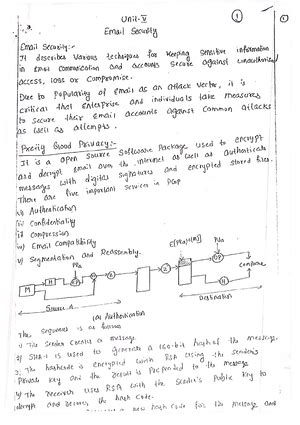 Unit-V
1
Email Security
Email Security:-
It describes various techniques for keeping sensitive information
in Email communication and accounts secure against unauthorised
access, loss or compromise.
Due to popularity of Email as an attack vector, it is
critical that enterprise and individuals take measures
to secure their Email accounts against common attacks
as well as attempts.
Pretty Good Privacy:-
It is a open source software package used to encrypt
and decrypt email over the internet as well as authenticate
messages with digital signatures and encrypted stored files.
There are five important services in PGP
i) Authentication
ii) Confidentiality
iii) Compression
iv) Email Compatibility
v) Segmentation and Reassembly.
PRa
E[PRa, H(M)]
PUa
M
H
EP
Z
DP
H
Compare
Source A
Destination
(a) Authentication
The sequence is as follows
1) The sender creates a message
2) SHA-1 is used to generate a 160-bit hash of the message.
3) The hashcode is encrypted with RSA using the sender's
private key and the result is prepended to the message
4) The receiver uses RSA with the sender's public key to
decrypt and recover the hash code.
a new hash code for the message and